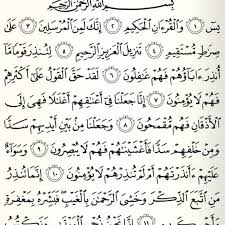 بِسْمِ اللَّهِ الرَّحْمَٰنِ الرَّحِيمِ
يسٓ ١ وَالْقُرْءَانِ الْحَكِيمِ ٢ إِنَّكَ لَمِنَ الْمُرْسَلِينَ ٣ عَلَىٰ
صِرَٰطٍ مُّسْتَقِيمٍ ٤ تَنزِيلَ الْعَزِيزِ الرَّحِيمِ ٥ لِتُنذِرَ قَوْمًا مَّآ
أُنذِرَ ءَابَآؤُهُمْ فَهُمْ غَٰفِلُونَ ٦ لَقَدْ حَقَّ الْقَوْلُ عَلَىٰٓ أَكْثَرِهِمْ
فَهُمْ لَا يُؤْمِنُونَ ٧ إِنَّا جَعَلْنَا فِىٓ أَعْنَٰقِهِمْ أَغْلَٰلًا فَهِىَ إِلَى
الْأَذْقَانِ فَهُم مُّقْمَحُونَ ٨ وَجَعَلْنَا مِنۢ بَيْنِ أَيْدِيهِمْ سَدًّا
وَمِنْ خَلْفِهِمْ سَدًّا فَأَغْشَيْنَٰهُمْ فَهُمْ لَا يُبْصِرُونَ ٩ وَسَوَآءٌ
عَلَيْهِمْ ءَأَنذَرْتَهُمْ أَمْ لَمْ تُنذِرْهُمْ لَا يُؤْمِنُونَ ١٠ إِنَّمَا تُنذِرُ
مَنِ اتَّبَعَ الذِّكْرَ وَخَشِىَ الرَّحْمَٰنَ بِالْغَيْبِ فَبَشِّرْهُ بِمَغْفِرَةٍ